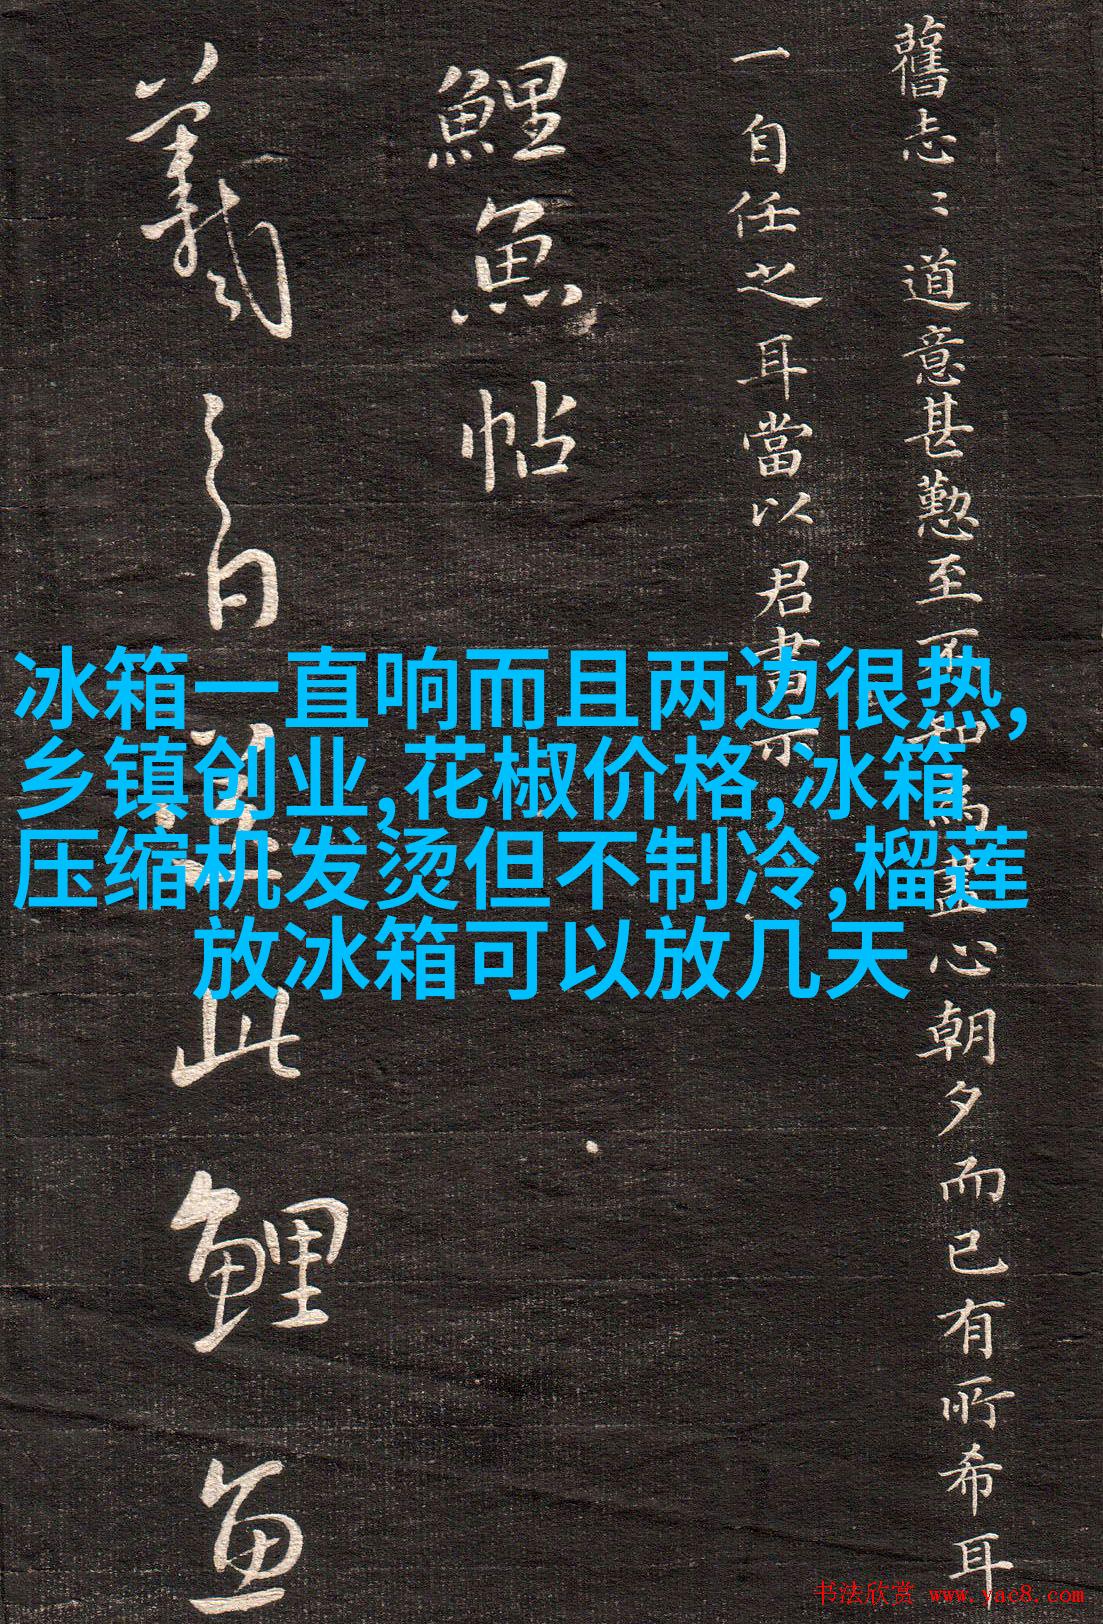 舊志〻道意甚懃至不知爲盡心朝夕而已有所希耳
一自任之耳當以君書示
鯉魚帖
羲之白
此鯉魚
冰箱一直响而且两边很热,
乡镇创业,花椒价格,冰箱
压缩机发烫但不制冷,榴莲
放冰箱可以放几天
书法欣赏 www.yac8.com